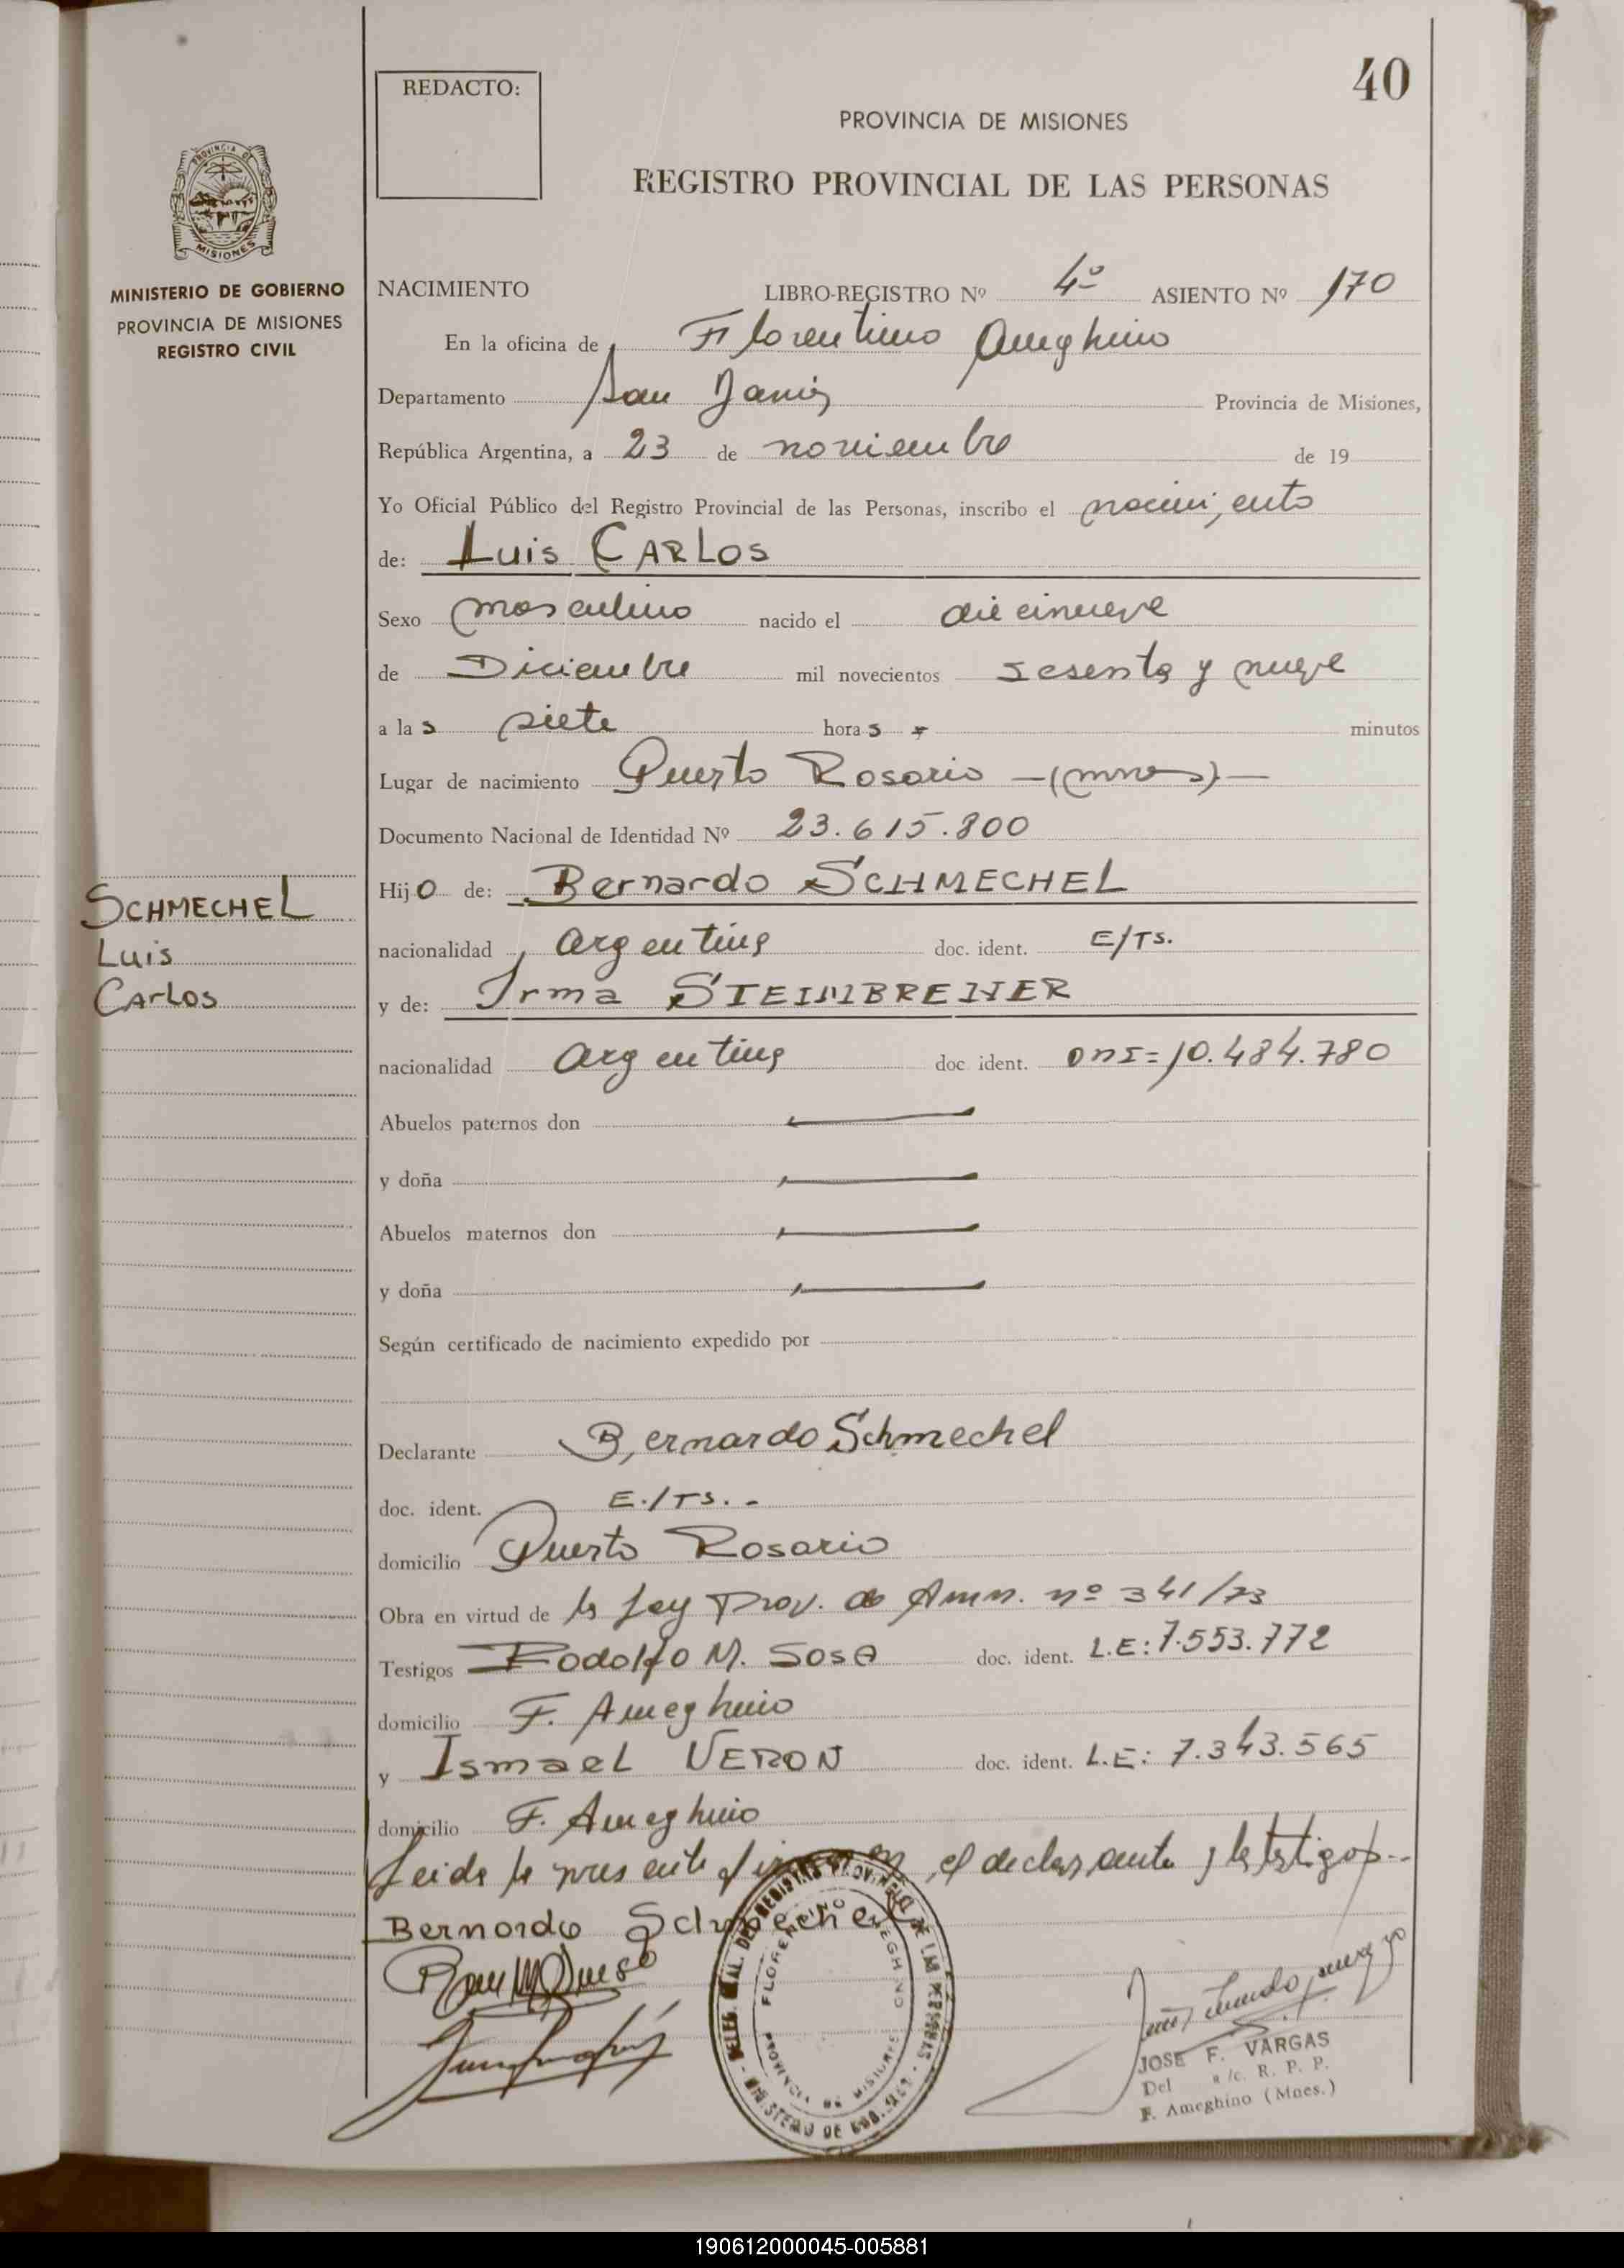 40
REDACTO:
PROVINCIA DE MISIONES
REGISTRO PROVINCIAL DE LAS PERSONAS
PROVINCIA DE
MISIONES
MINISTERIO DE GOBIERNO
PROVINCIA DE MISIONES
REGISTRO CIVIL
NACIMIENTO LIBRO-REGISTRO Nº 4º ASIENTO Nº 170
En la oficina de Florentino Ameghino
Departamento San Javier Provincia de Misiones,
República Argentina, a 23 de noviembre de 19
Yo Oficial Público del Registro Provincial de las Personas, inscribo el nacimiento
de: Luis CARLOS
Sexo masculino nacido el diecinueve
de Diciembre mil novecientos sesenta y nueve
a las siete horas minutos
Lugar de nacimiento Puerto Rosario -(mnes)-
Documento Nacional de Identidad Nº 23.615.800
Hijo de: Bernardo SCHMECHEL
SCHMECHEL
Luis
CArLos
nacionalidad argentina doc. ident. E/Ts.
y de: Irma STEIMBRENER
nacionalidad argentina doc ident. DNI= 10.484.780
Abuelos paternos don
y doña
Abuelos maternos don
y doña
Según certificado de nacimiento expedido por
Declarante Bernardo Schmechel
doc. ident. E./Ts.-
domicilio Puerto Rosario
Obra en virtud de la Ley Prov. de Amn. nº 341/73
Testigos Rodolfo M. SosA doc. ident. L.E: 7.553.772
domicilio F. Ameghino
y IsmaeL VERON doc. ident. L.E: 7.343.565
domicilio F. Ameghino
Leida la presente firman en el declarante y los testigos.--
Bernardo Schmechel
DELEG. DEL REGISTRO PROVINCIAL DE LAS PERSONAS - MINISTERIO DE GOB.
FLORENTINO AMEGHINO
PROVINCIA DE MISIONES
JOSE F. VARGAS
Del a/c. R. P. P.
F. Ameghino (Mnes.)
190612000045-005881